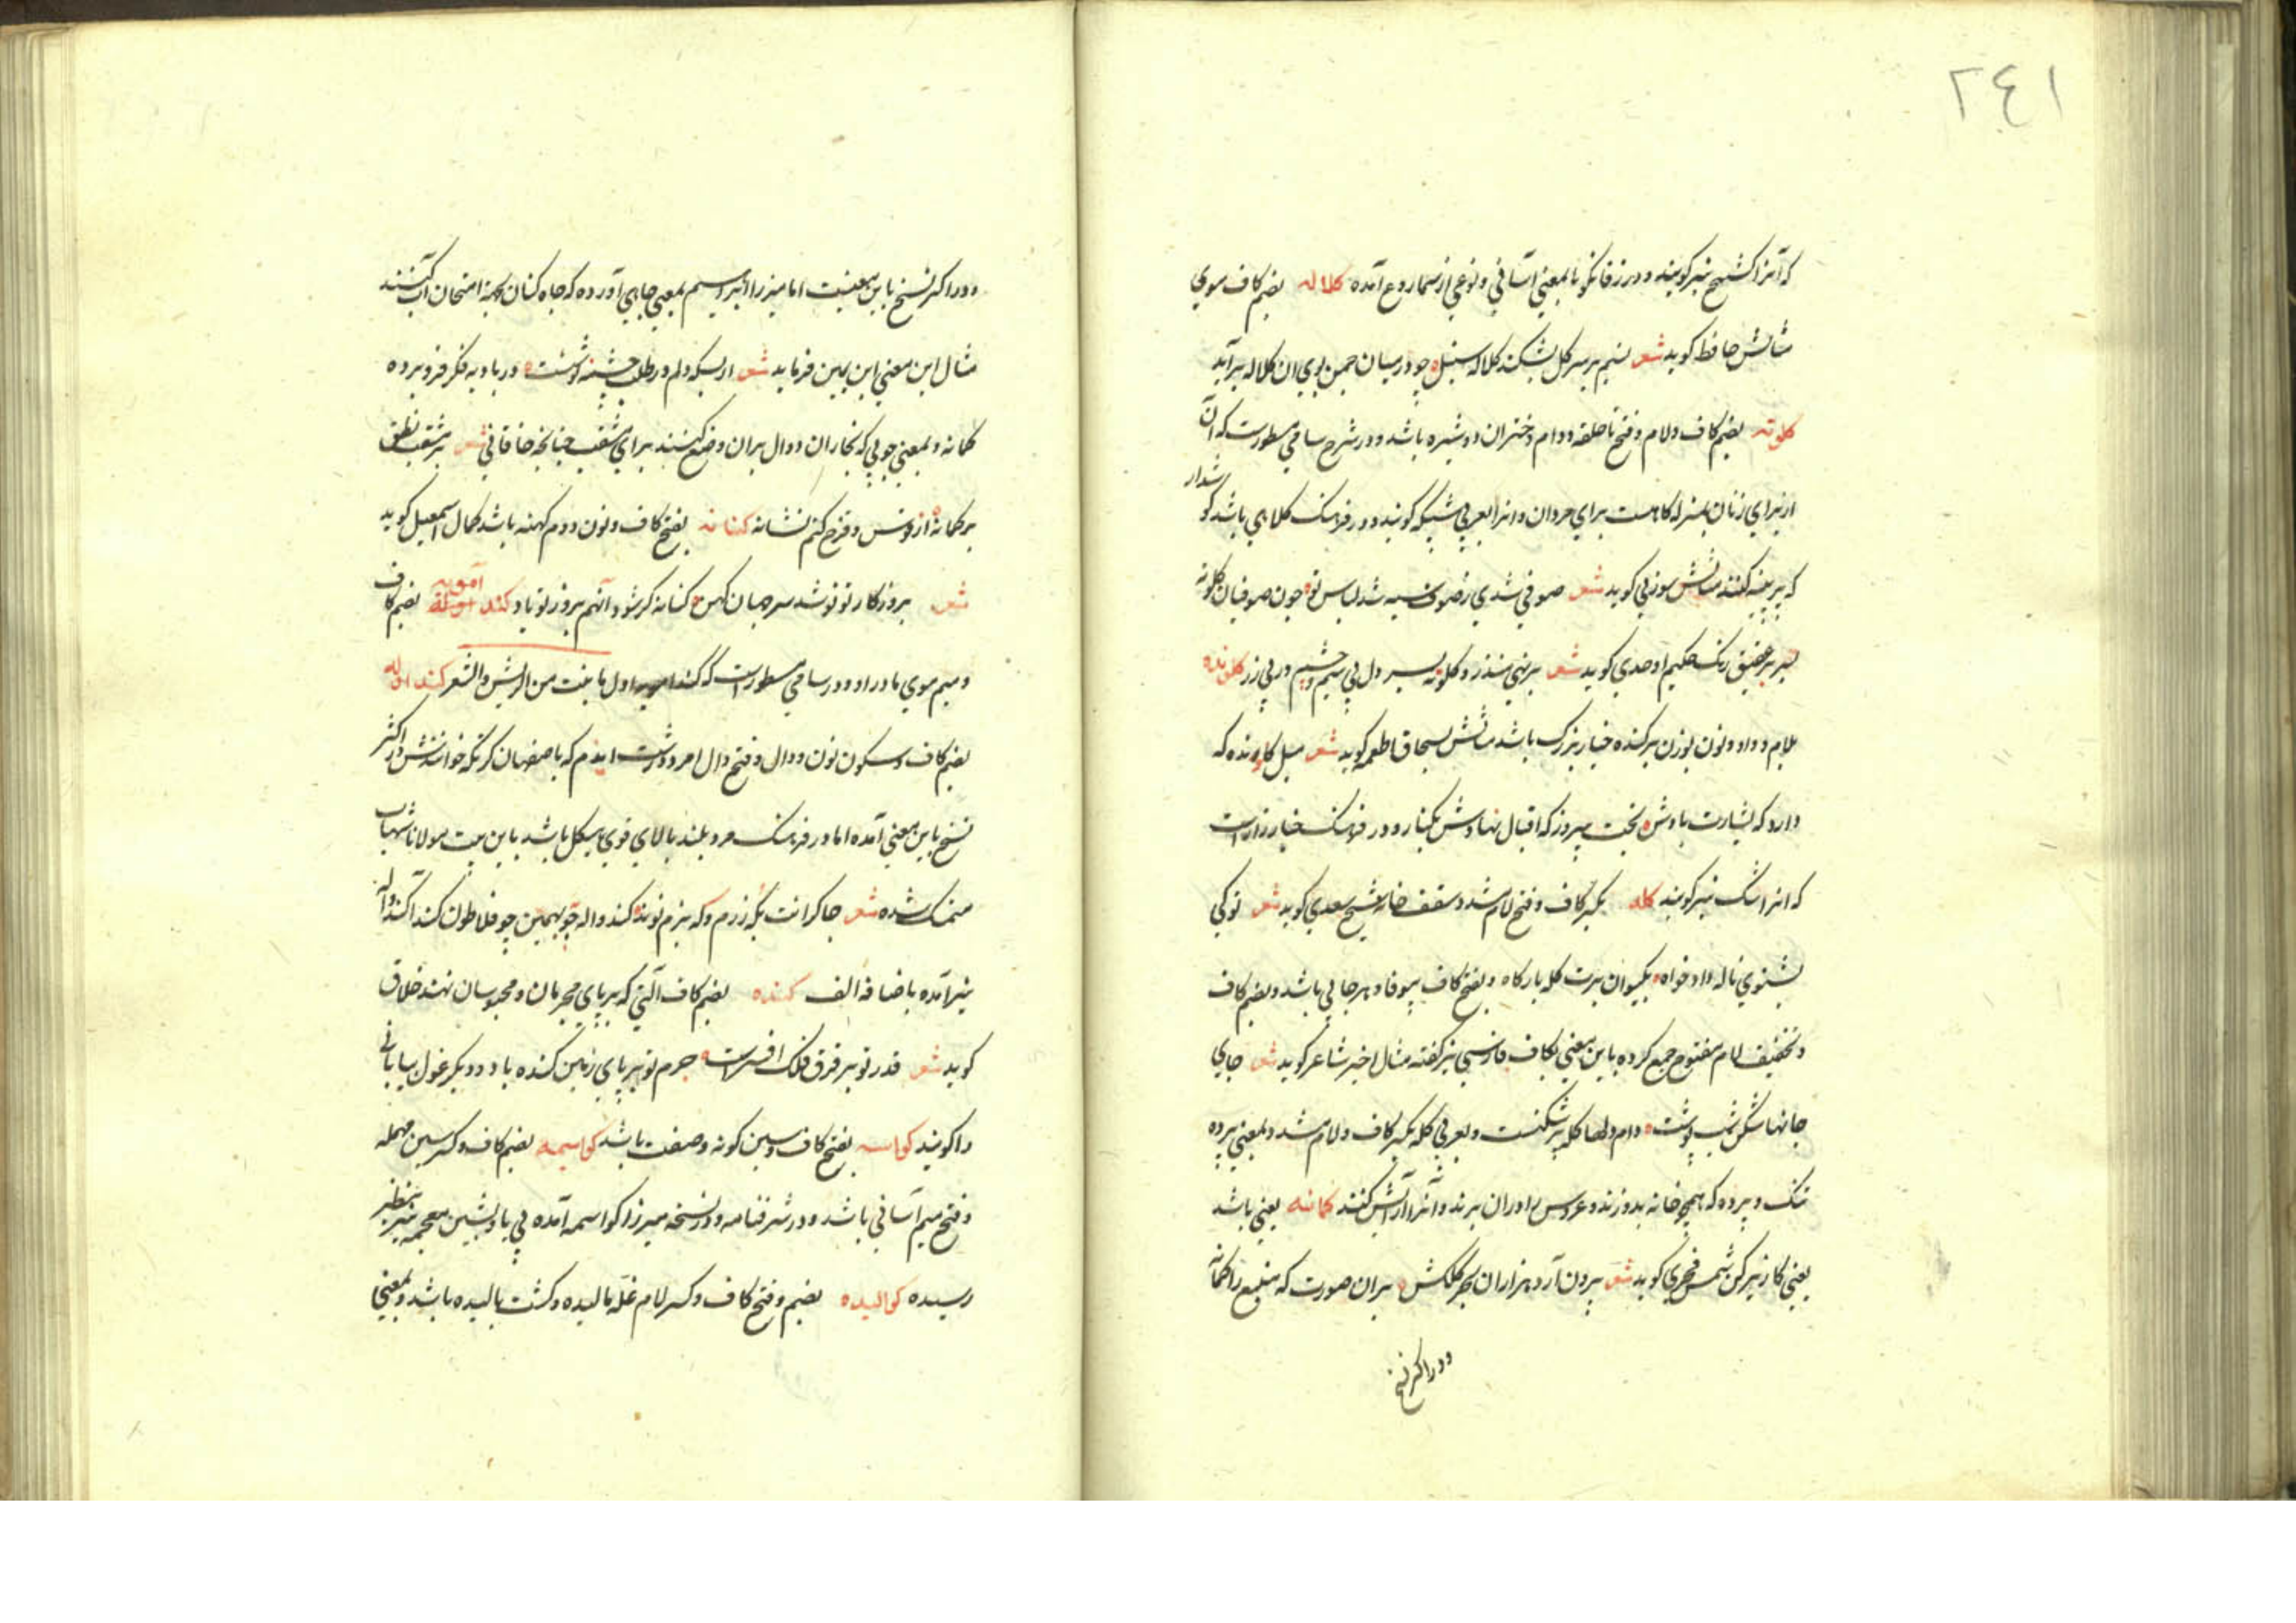 ٢٤١
که آنرا کشیح نیز گویند و در زفانگویا بمعنی آسانی و نوعی از سماروغ آمده کلاله بضم کاف موی
مثالش حافظ گوید شعر نسیم بر سر گل بشکند کلاله سنبل چو در میان چمن بوی ان کلاله برآید
کلوته بضم کاف و لام و فتح تا حلقه و دام دختران دوشیره باشد و در شرح سامی مسطورست که آن
از برای زنان بمنزله کلاهست برای مردان و انرا بعربی شبیکه گویند و در فرهنک کلاهی باشد گوشدار
که پر پنبه کنند مثالش سوزنی گوید شعر صوفی شدی صوف سیه شد لباس تو چون صوفیان کلوته
بسر بر عقیق رنک حکیم اوحدی گوید شعر کلوته بسر دل پی سیم و چشم در پی زر کلونده
بلام و واو و نون بوزن پرکنده خیار بزرک باشد مثالش بسحاق اطعمه گوید شعر میل کلونده که
دارد که بشارت بادش بخت پیروز که اقبال نهادش بکنار و در فرهنک خیار زارست
که انرا شنک نیز گویند کله بکسر کاف و فتح لام مشدد سقف خانه شیخ سعدی گوید شعر تو کی
بشنوی ناله دادخواه بکیوان برت کله بارکاه و بفتح کاف بیوفا و هرجایی باشد و بضم کاف
و تخفیف لام مفتوح جمع کرده باین معنی بکاف فارسی نیز گفته مثال اخیر شاعر گوید شعر جای
جانها شکن شب پوشت دام دلها کله پرشکنست و بعربی کله بکسر کاف و لام مشدد بمعنی پرده
تنک و پرده که همچو خانه بدوزند و عروس را دران برند و آنرا آرایش کنند کمانه یعنی باشد
یعنی کاریز کن شمس فخری گوید شعر برون آرد هزاران بحر کلکش بران صورت که منبع را کمانه
و در اکثر نسخ
و در اکثر نسخ باین معنیست اما میرزا ابراهیم بمعنی چاهی آورده که چاه کنان بجهة امتحان آب کنند
مثال این معنی ابن یمین فرماید شعر از بسکه دلم در طلب چشمه نوشت در بادیه فکر فرو برده
کمانه و بمعنی چوبی که نجاران و دوال بران وضع کنند برای مثقب چنانچه خاقانی شعر بر مثقب نطق
بر کمانه از قوس و قزح کنم نشانه کنانه بفتح کاف و نون دوم کهنه باشد کمال اسمعیل گوید
شعر بروزکار تو نو شد سر جهان کهن کنانه گر شود آنهم بروز تو باد کنداموله آمویه بضم کاف
و میم موی مادرزاد و در سامی مسطورست که کندامویه اول ما ینبت من الریش و الشعر کندواله
بضم کاف و سکون نون و دال و فتح دال امرد درشت اندام که باصفهان کرنکه خوانندش در اکثر
نسخ باین معنی آمده اما در فرهنک مرد بلند بالای قوی هیکل باشد باین بیت مولانا شهاب
متمسک شده شعر چاکرانت بکه رزم و که بزم تو بدند کندواله چو بهمن چو فلاطون کندا کنداواله
نیز آمده باضافه الف کنده بضم کاف آلتی که بر پای مجرمان و محبوسان نهند خلاق
گوید شعر قدر تو بر فرق فلک افسرست جرم تو بر پای زمین کنده باد و دیکر غول بیابانی
را گویند کواسه بفتح کاف و سین گونه و صفت باشد کواسیمه بضم کاف و کسر سین مهمله
و فتح میم آسانی باشد و در شرفنامه و در نسخه میرزا کواسمه آمده بی یا و بشین معجمه نیز بنظر
رسیده کوالیده بضم و فتح کاف و کسر لام غله بالیده و کشت بالیده باشد و بمعنی